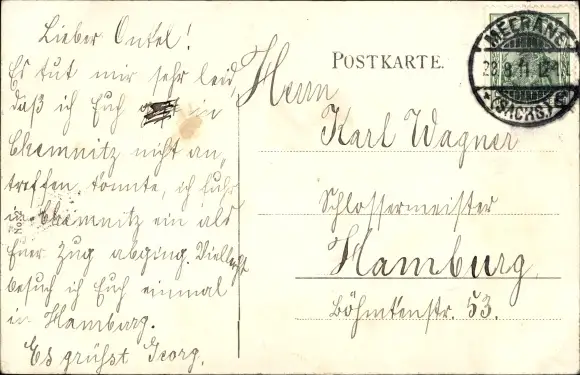 Lieber Onkel!
Es tut mir sehr leid,
daß ich Euch in
Chemnitz nicht an-
treffen konnte, ich fuhr
in Chemnitz ein als
Euer Zug abging. Vielleicht
besuch ich Euch einmal
in Hamburg.
Es grüßt Georg.
POSTKARTE.
Herrn
Karl Wagner
Schlossermeister
Hamburg
Böhmkenstr. 53.
MEERANE
28.8.11.
(SACHS.)